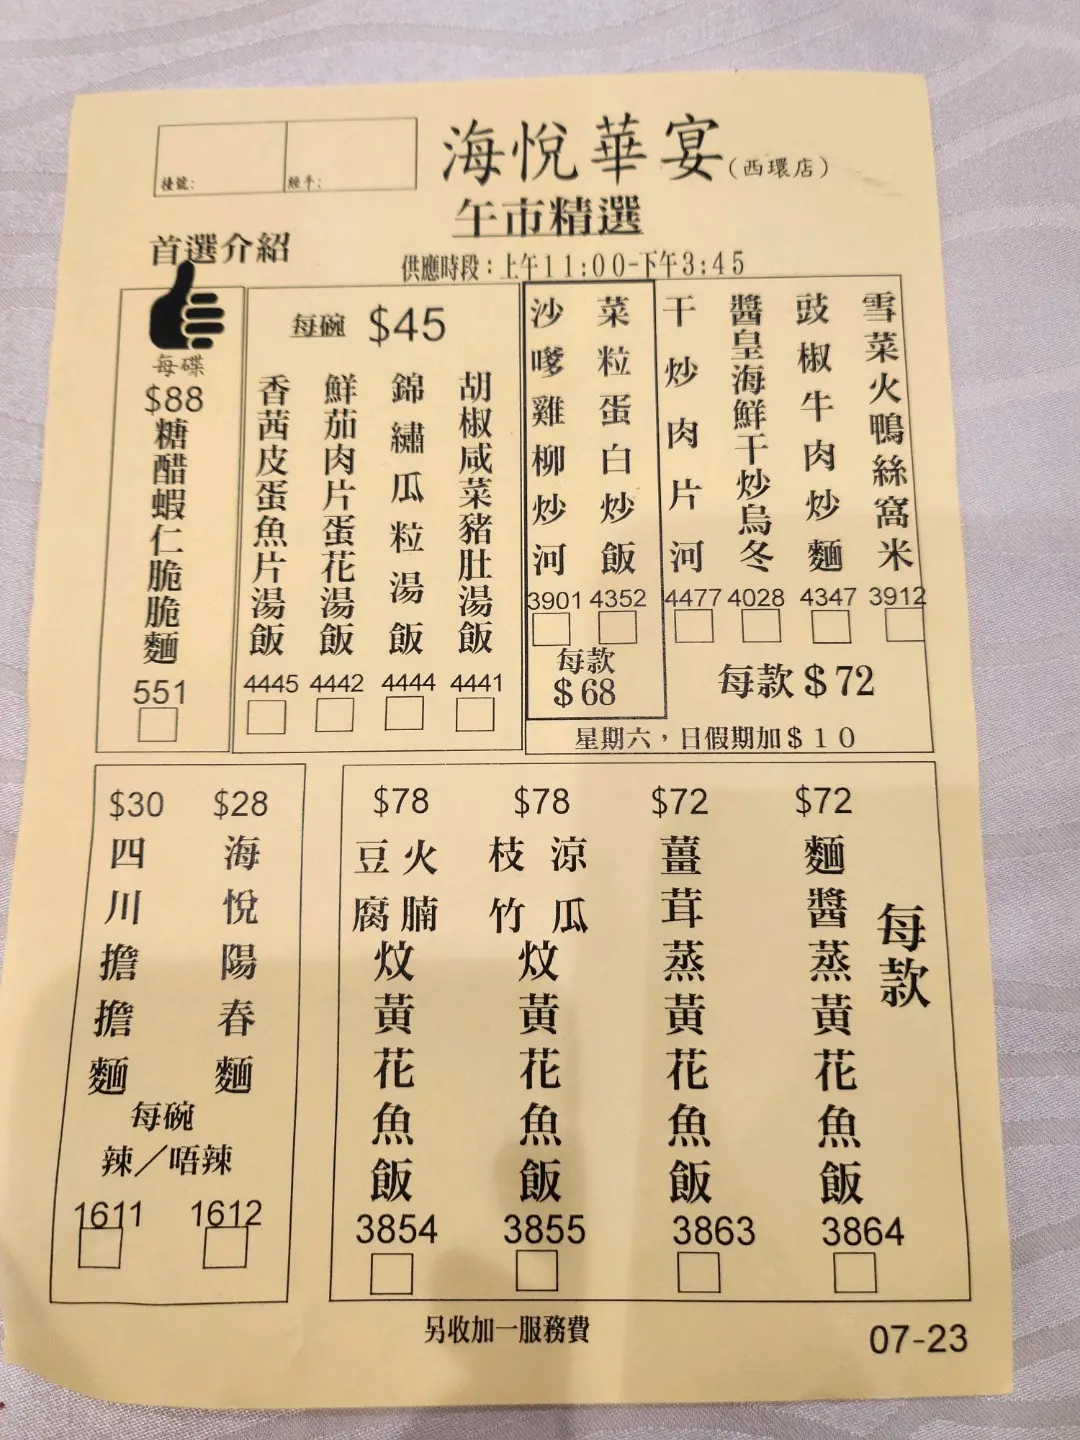 海悅華宴(西環店)
檯號:
經手:
午市精選
首選介紹
供應時段：上午11:00-下午3:45
每碟
$88
糖醋蝦仁脆脆麵
551
每碗 $45
香茜皮蛋魚片湯飯
4445
鮮茄肉片蛋花湯飯
4442
錦繡瓜粒湯飯
4444
胡椒咸菜豬肚湯飯
4441
沙嗲雞柳炒河
3901
菜粒蛋白炒飯
4352
每款
$68
干炒肉片河
4477
醬皇海鮮干炒烏冬
4028
豉椒牛肉炒麵
4347
雪菜火鴨絲窩米
3912
每款$72
星期六，日假期加$10
$30
四川擔擔麵
$28
海悅陽春麵
每碗
辣／唔辣
1611
1612
$78
火腩豆腐炆黃花魚飯
3854
$78
涼瓜枝竹炆黃花魚飯
3855
$72
薑茸蒸黃花魚飯
3863
$72
麵醬蒸黃花魚飯
3864
每款
另收加一服務費
07-23